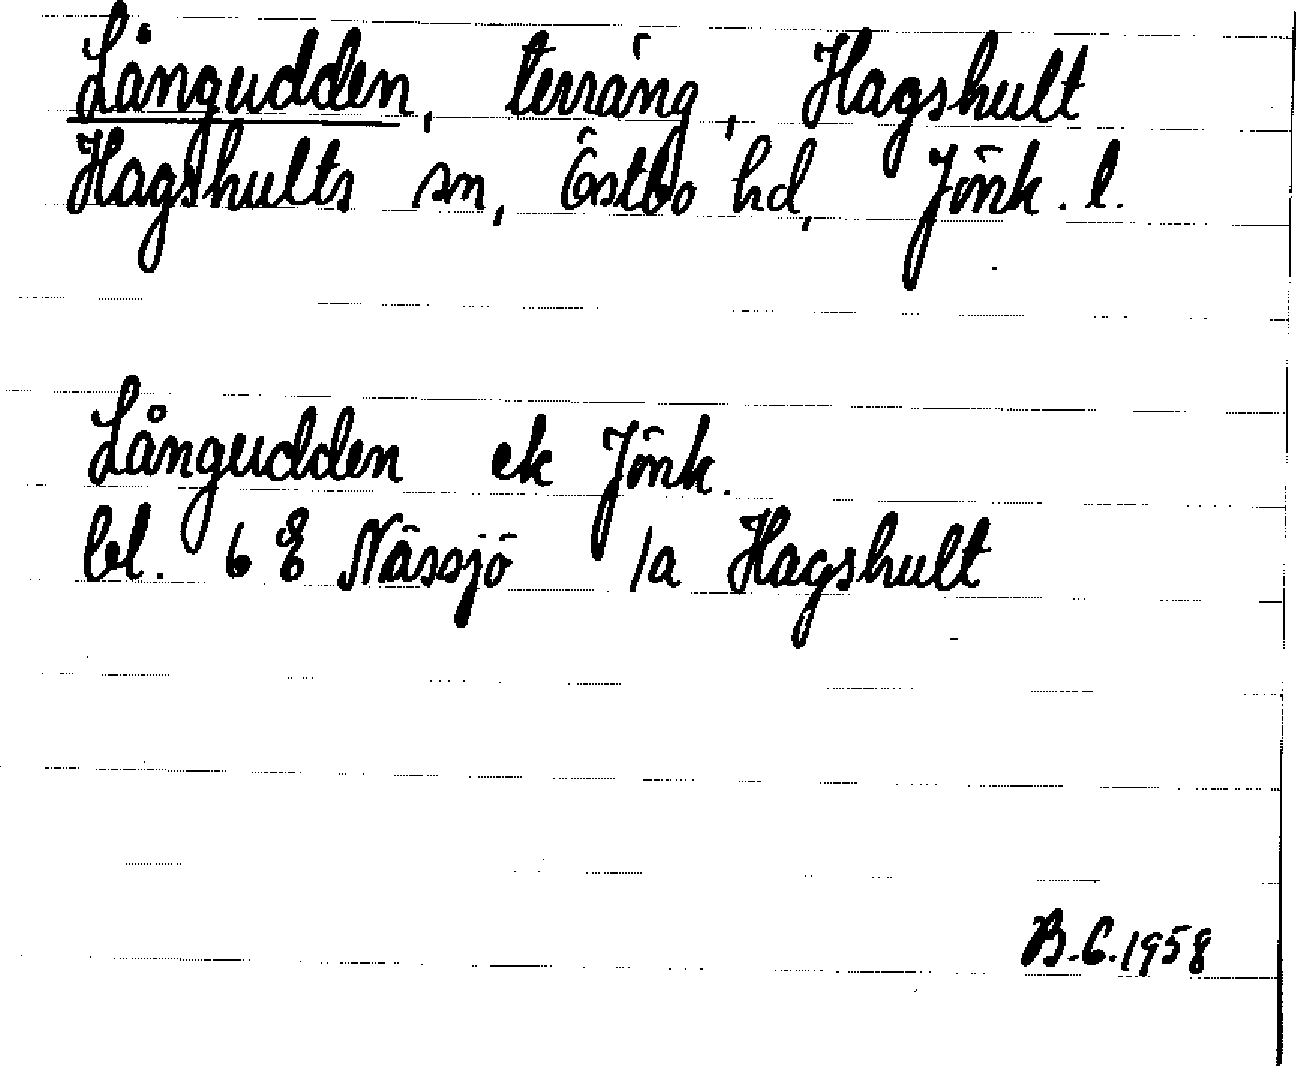 Långudden, terräng, Hagshult
Hagshults sn, Östbo hd, Jönk. l.
Långudden ek Jönk.
bl. 6 E Nässjö 1a Hagshult
B.C. 1958